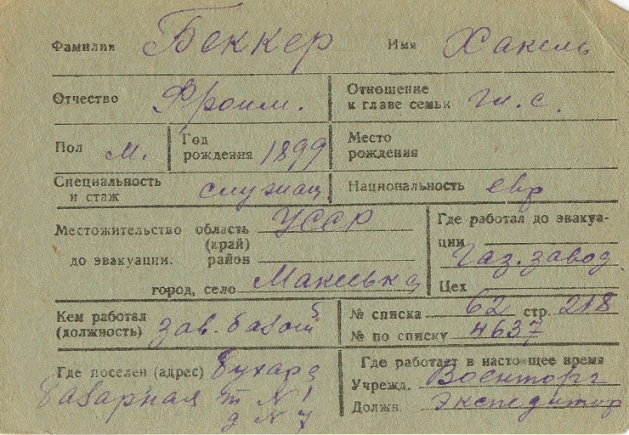 Фамилия Беккер Имя Хакель
Отчество Фроим. Отношение к главе семьи гл. с.
Пол м. Год рождения 1899 Место рождения
Специальность и стаж служащ Национальность евр
Местожительство до эвакуации. область (край) УССР
район
город, село Макеевка
Где работал до эвакуации Газ. завод.
Цех
Кем работал (должность) зав. базой
№ списка 62 стр. 218
№ по списку 4637
Где поселен (адрес) Бухара
базарная т N 1
д N 7
Где работает в настоящее время
Учрежд. Военторг
Должн. экспедитор